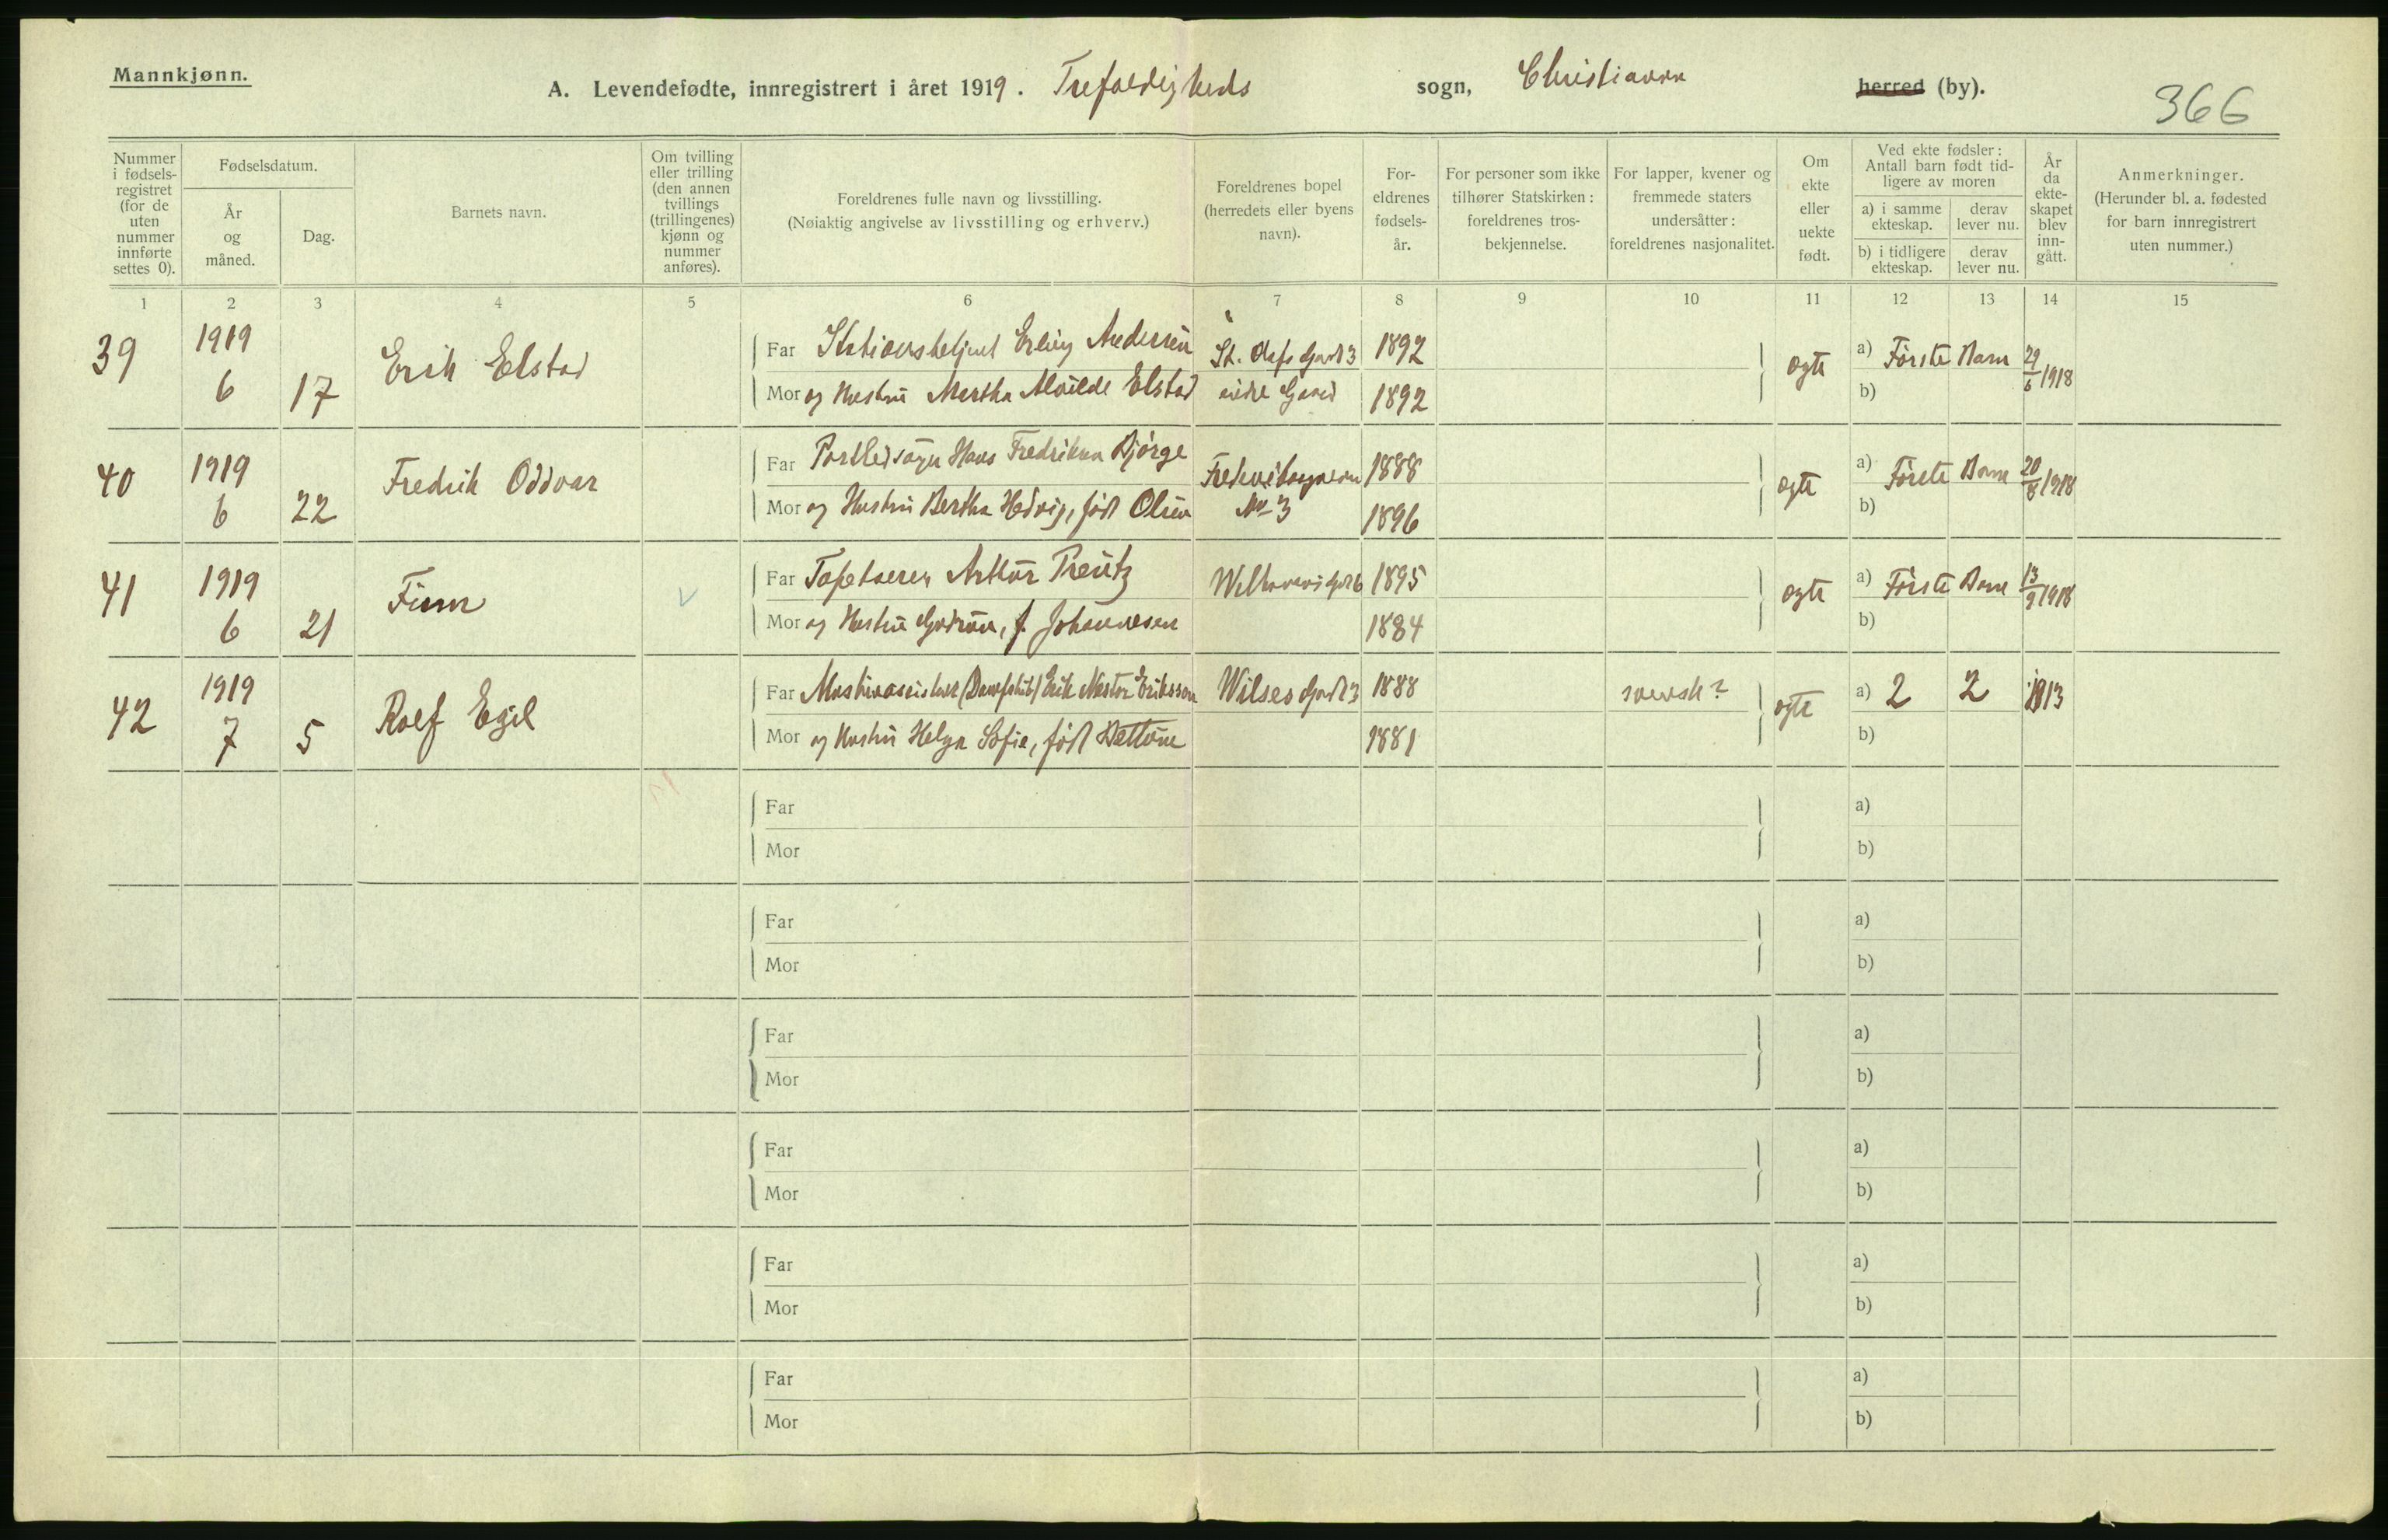 Mannkjønn.
A. Levendefødte, innregistrert i året 1919. Trefoldigheds sogn, Christiania herred (by).
366
Nummer i fødsels-registret (for de uten nummer innførte settes 0).
Fødselsdatum.
År og måned.
Dag.
Barnets navn.
Om tvilling eller trilling (den annen tvillings (trillingenes) kjønn og nummer anføres).
Foreldrenes fulle navn og livsstilling.
(Nøiaktig angivelse av livsstilling og erhverv.)
Foreldrenes bopel (herredets eller byens navn).
For-eldrenes fødsels-år.
For personer som ikke tilhører Statskirken: foreldrenes tros-bekjennelse.
For lapper, kvener og fremmede staters undersåtter: foreldrenes nasjonalitet.
Om ekte eller uekte født.
Ved ekte fødsler: Antall barn født tid-ligere av moren
a) i samme ekteskap.
derav lever nu.
b) i tidligere ekteskap.
derav lever nu.
År da ekte-skapet blev inn-gått.
Anmerkninger.
(Herunder bl. a. fødested for barn innregistrert uten nummer.)
1 2 3 4 5 6 7 8 9 10 11 12 13 14 15
39 1919 6 17 Erik Elstad
Far Erling Andersen St. Olafs Gad 3 1892
Mor og Hustru Martha Alvilde Elstad 1892
ogte a) Første Barn 29/6 1918
b)
40 1919 6 22 Fredrik Oddvar
Far Hans Fredriksen Bjørge 1888
Mor og Hustru Bertha Hedvig, født Olsen No 3 1896
ogte a) Første Barn 20/8 1918
b)
41 1919 6 21 Finn
Far Tapetserer Arthur Preutz 1895
Mor og Hustru Gudrun, f. Johannesen 1884
ogte a) Første Barn 13/9 1918
b)
42 1919 7 5 Rolf Egil
Far Erik Nestor Eriksson Wilses Gad 3 1888 svensk?
Mor og Hustru Helga Sofie, født 1881
ogte a) 2 2 1913
b)
Far a)
Mor b)
Far a)
Mor b)
Far a)
Mor b)
Far a)
Mor b)
Far a)
Mor b)
Far a)
Mor b)